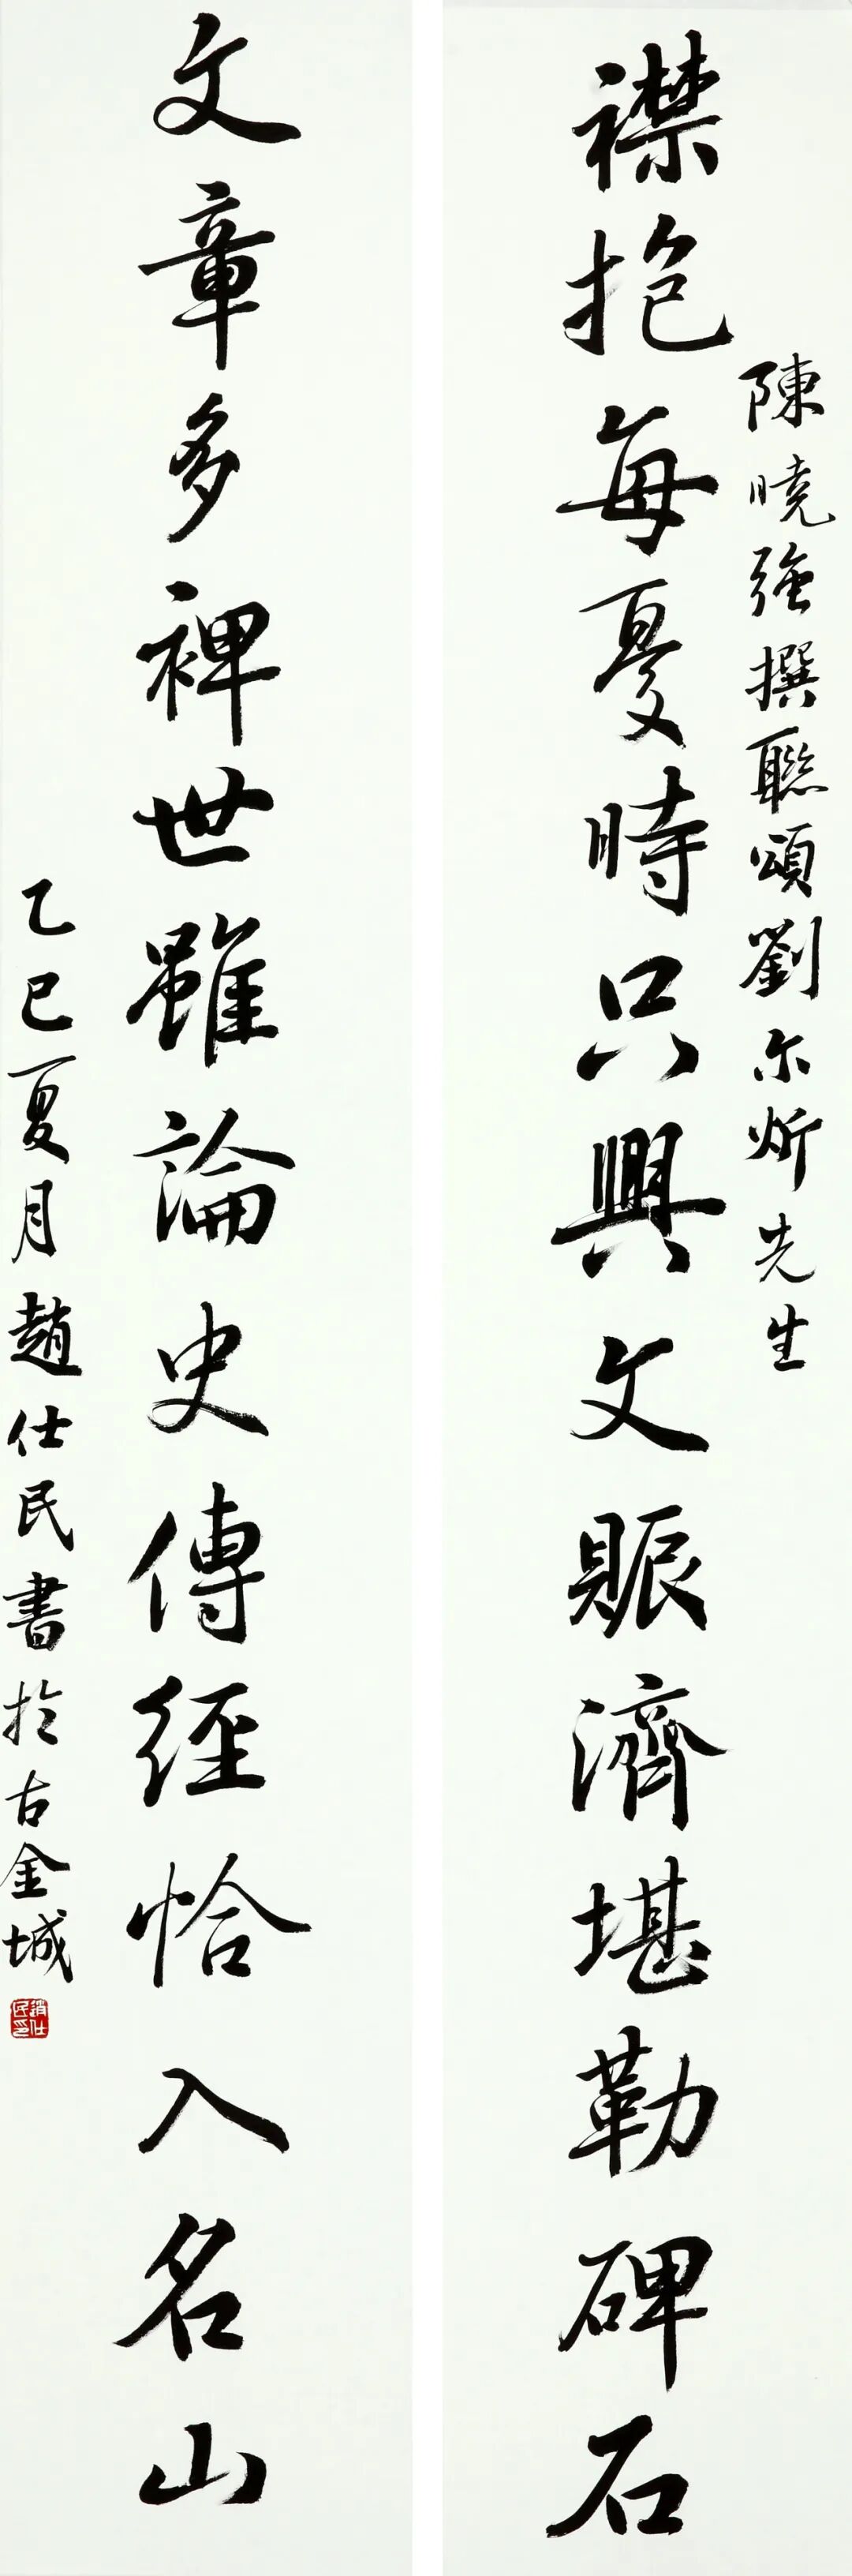 陳曉強撰聯頌劉尔炘先生
襟抱每憂時只興文賑濟堪勒碑石
文章多裨世雖論史傳經恰入名山
乙巳夏月趙仕民書於古金城
趙仕民印